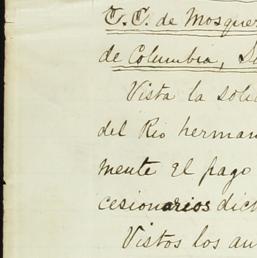 T. C. de Mosquer
de Columbia, S
Vista la soli
del Rio herman
mente el pago
cesionarios dich
Vistos los au